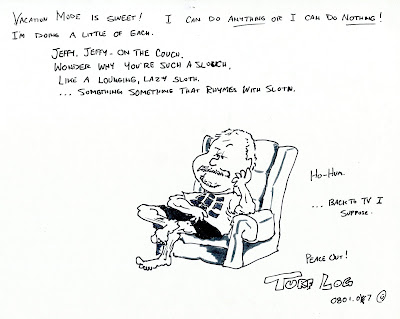 Vacation Mode is sweet! I can do anything or I can do nothing!
I'm doing a little of each.
Jeffy, Jeffy- on the couch.
Wonder why you're such a slouch.
Like a lounging, lazy sloth.
... Something something that rhymes with sloth.
Ho-Hum.
... Back to TV I
suppose.
Peace Out!